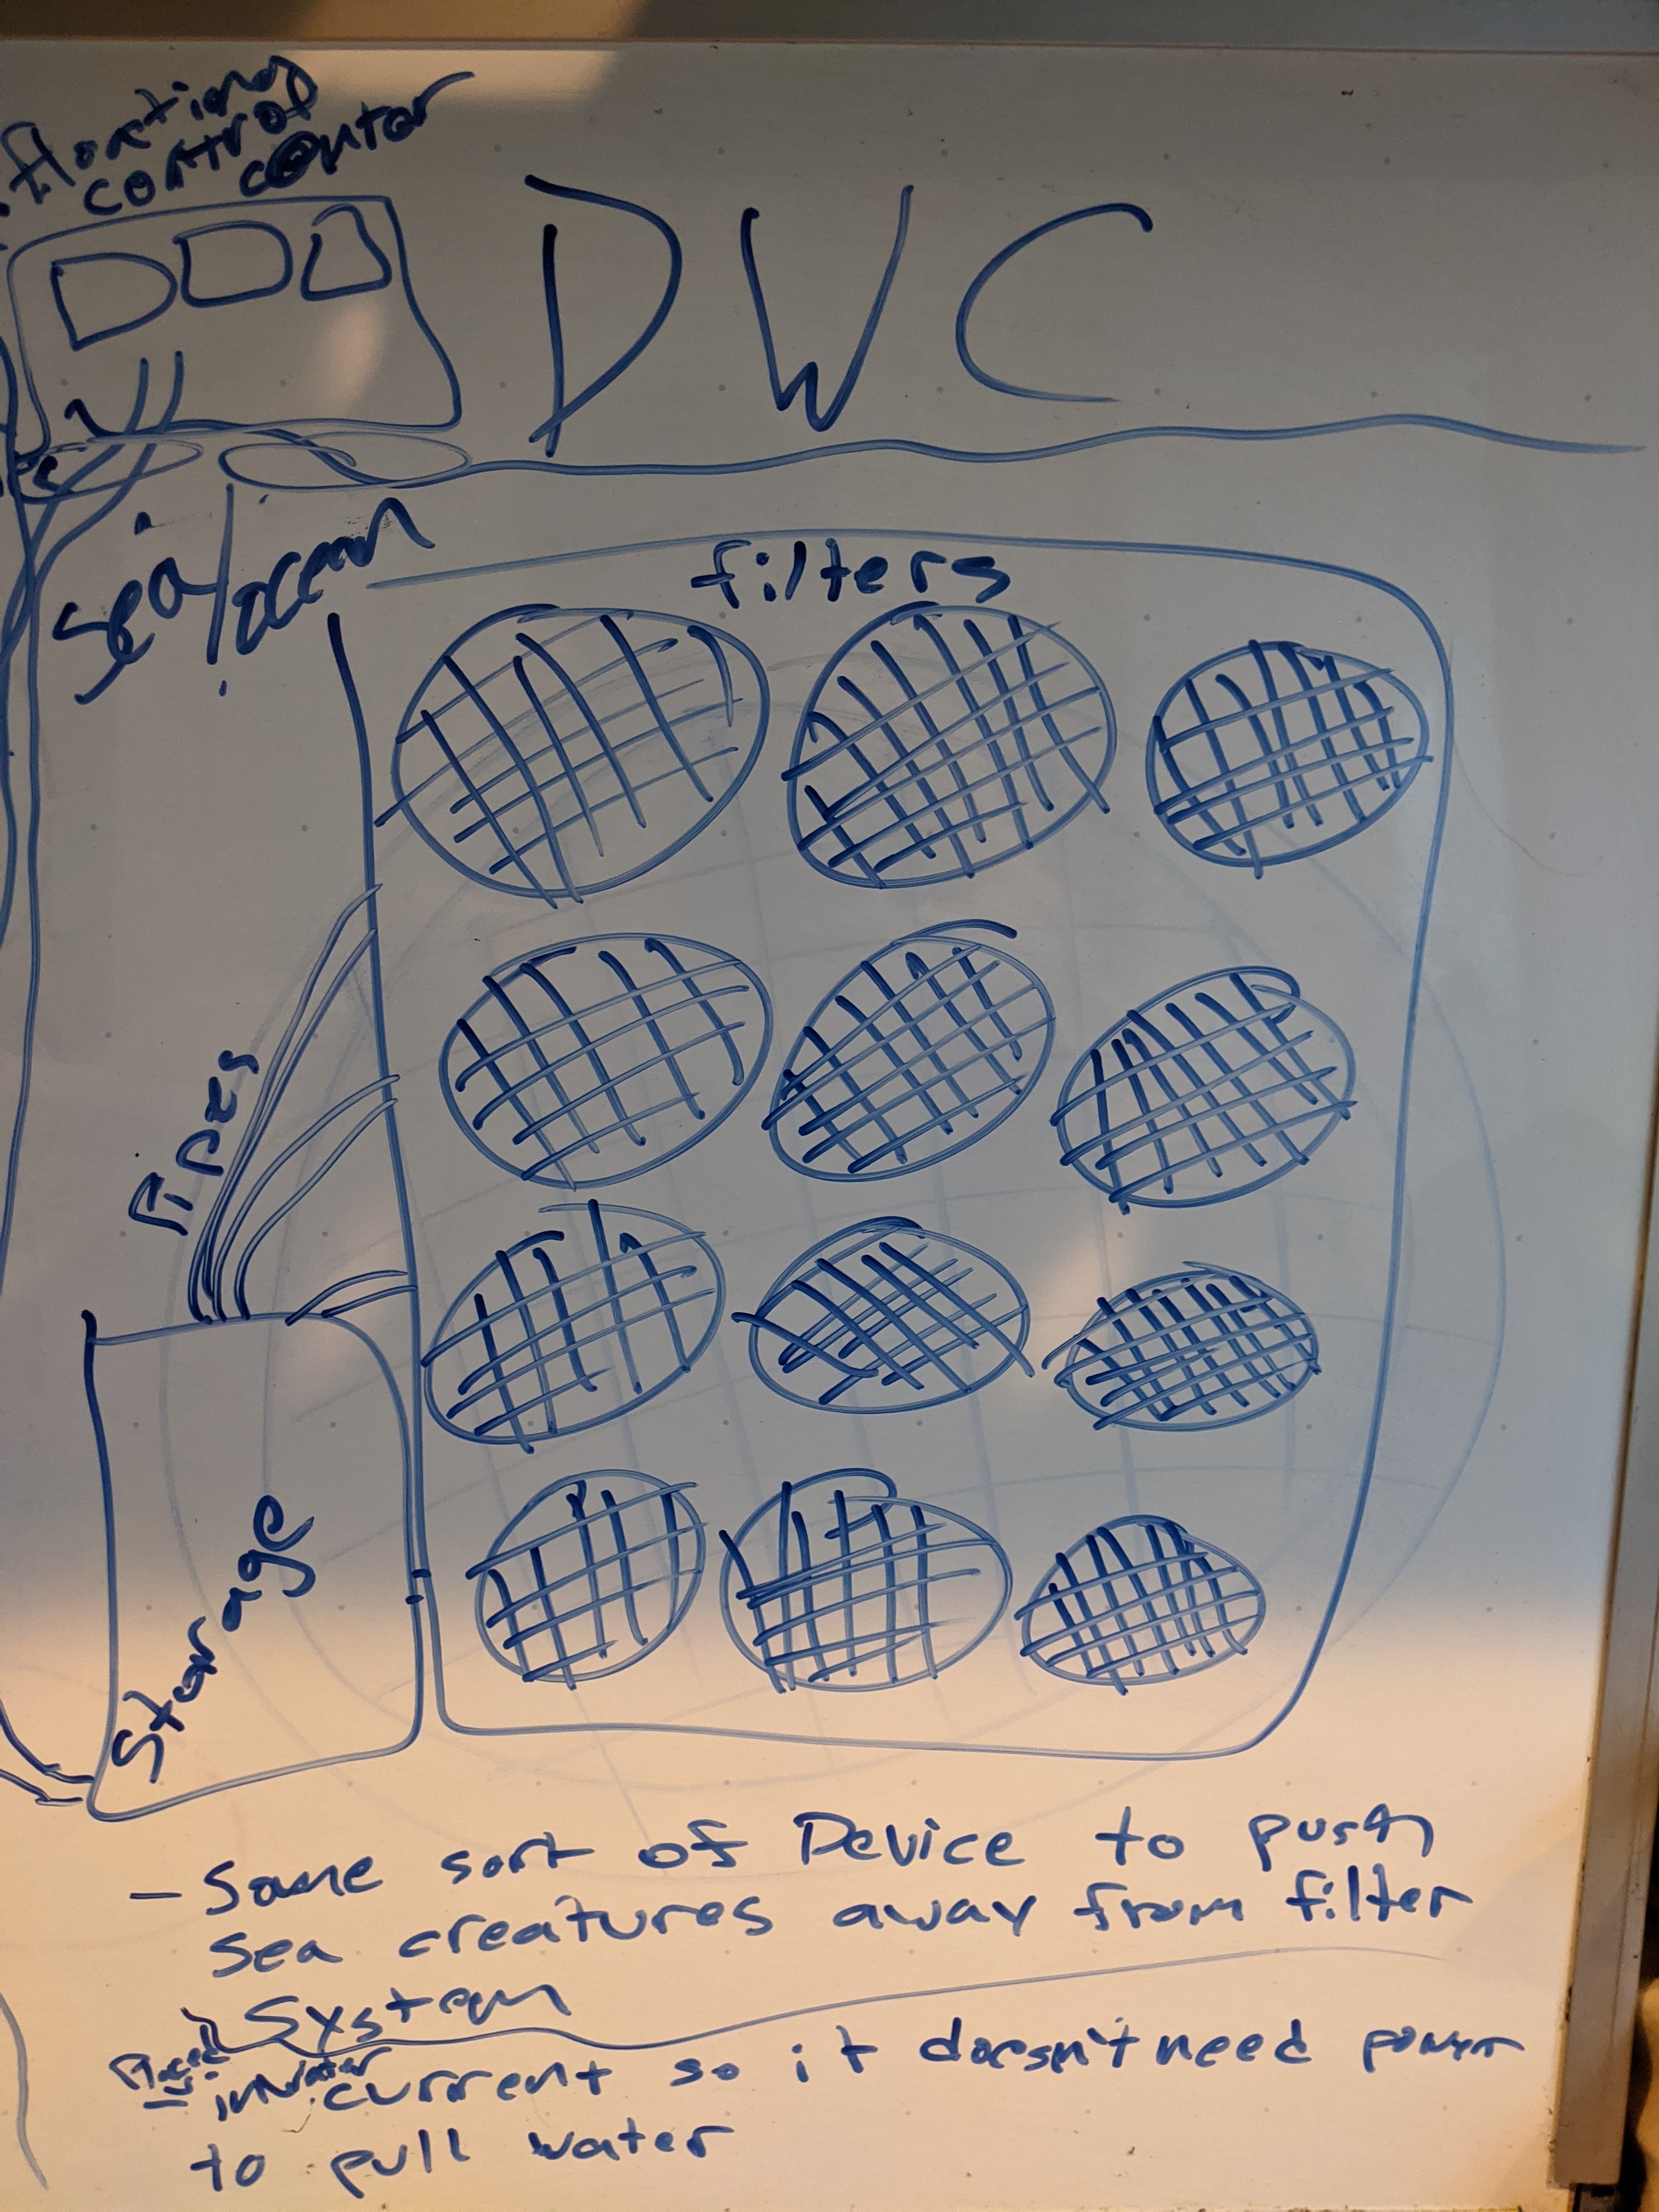 floating
control
center
DWC
Sea/ocean
filters
Pipes
Storage
- Some sort of Device to push
sea creatures away from filter
System
- Placed in water current so it doesn't need power
to pull water